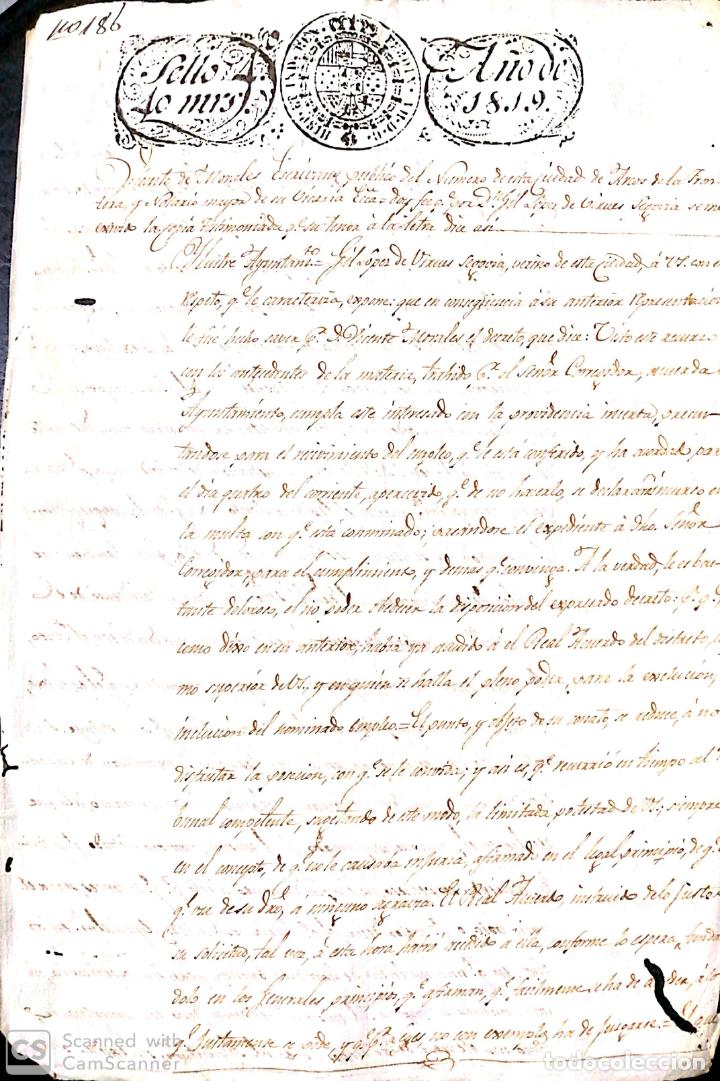 110186
Sello 4
40 mrs.
Año de
1819.
Vicente de Morales Escrivano publico del Numero de esta Ciudad de Arcos de la Fron
tera, y Notario mayor de su Vicaria Eca = doy fee q.e por D.n Gil Lopez de Virues Segovia se me
exivio la copia testimoniada q.e su tenor à la letra dice asi
Illustre Ayuntam.to = Gil Lopez de Virues Segovia, vecino de esta Ciudad, à VS. con el
respeto, q.e le caracteriza, expone: que en conseqüencia à su anterior representacion
le fue hecho saver p.r D. Vicente Morales el decreto, que dice: Visto este recurso
con los antecedentes de la materia, trahido p.r el Señor Corregidor, acuerda el
Ayuntamiento, cumpla este interesado con la providencia inserta, presen
tandose para el recivimiento del empleo, q.e le está conferido, y ha acordado para
el dia quatro del corriente, apercevido, q.e de no hacerlo, se declarará incurso en
la multa con q.e está conminado; pasandose el expediente à dho. Señor
Corregidor, para el cumplimiento, y demas q.e convenga. A la verdad, le es bas
tante doloroso, el no poder obedecer la disposicion del expresado decreto: p.r q.e
como dixo en su anterior, havia ya acudido à el Real Acuerdo del distrito, co
mo superior de VS., y en quien se halla el pleno poder, para la exclucion, è
inclucion del nominado empleo = El punto, y objeto de su conato, se reduce, à no
disfrutar la porcion, con q.e se le convida; y asi es, q.e recurrió en tiempo al Tri
bunal competente, sugetando de este modo, la limitada potestad de VS.; siempre
en el concepto, de q.e no le causaba injuria, afirmado en el legal principio, de q.e
q.e use de su dro., à ninguno agravia. El Real Acuerdo, instruido de lo justo de
su solicitud, tal vez, à esta hora havrá accedido à ella, conforme lo espera, funda
dolo en los generales principios, q.e afirman, q.e facilmente se ha de acceder, à lo
q.e justamente se pide, y q.e p.r Leyes no con exemplos ha de juzgarse =
CS Scanned with
CamScanner
todocoleccion